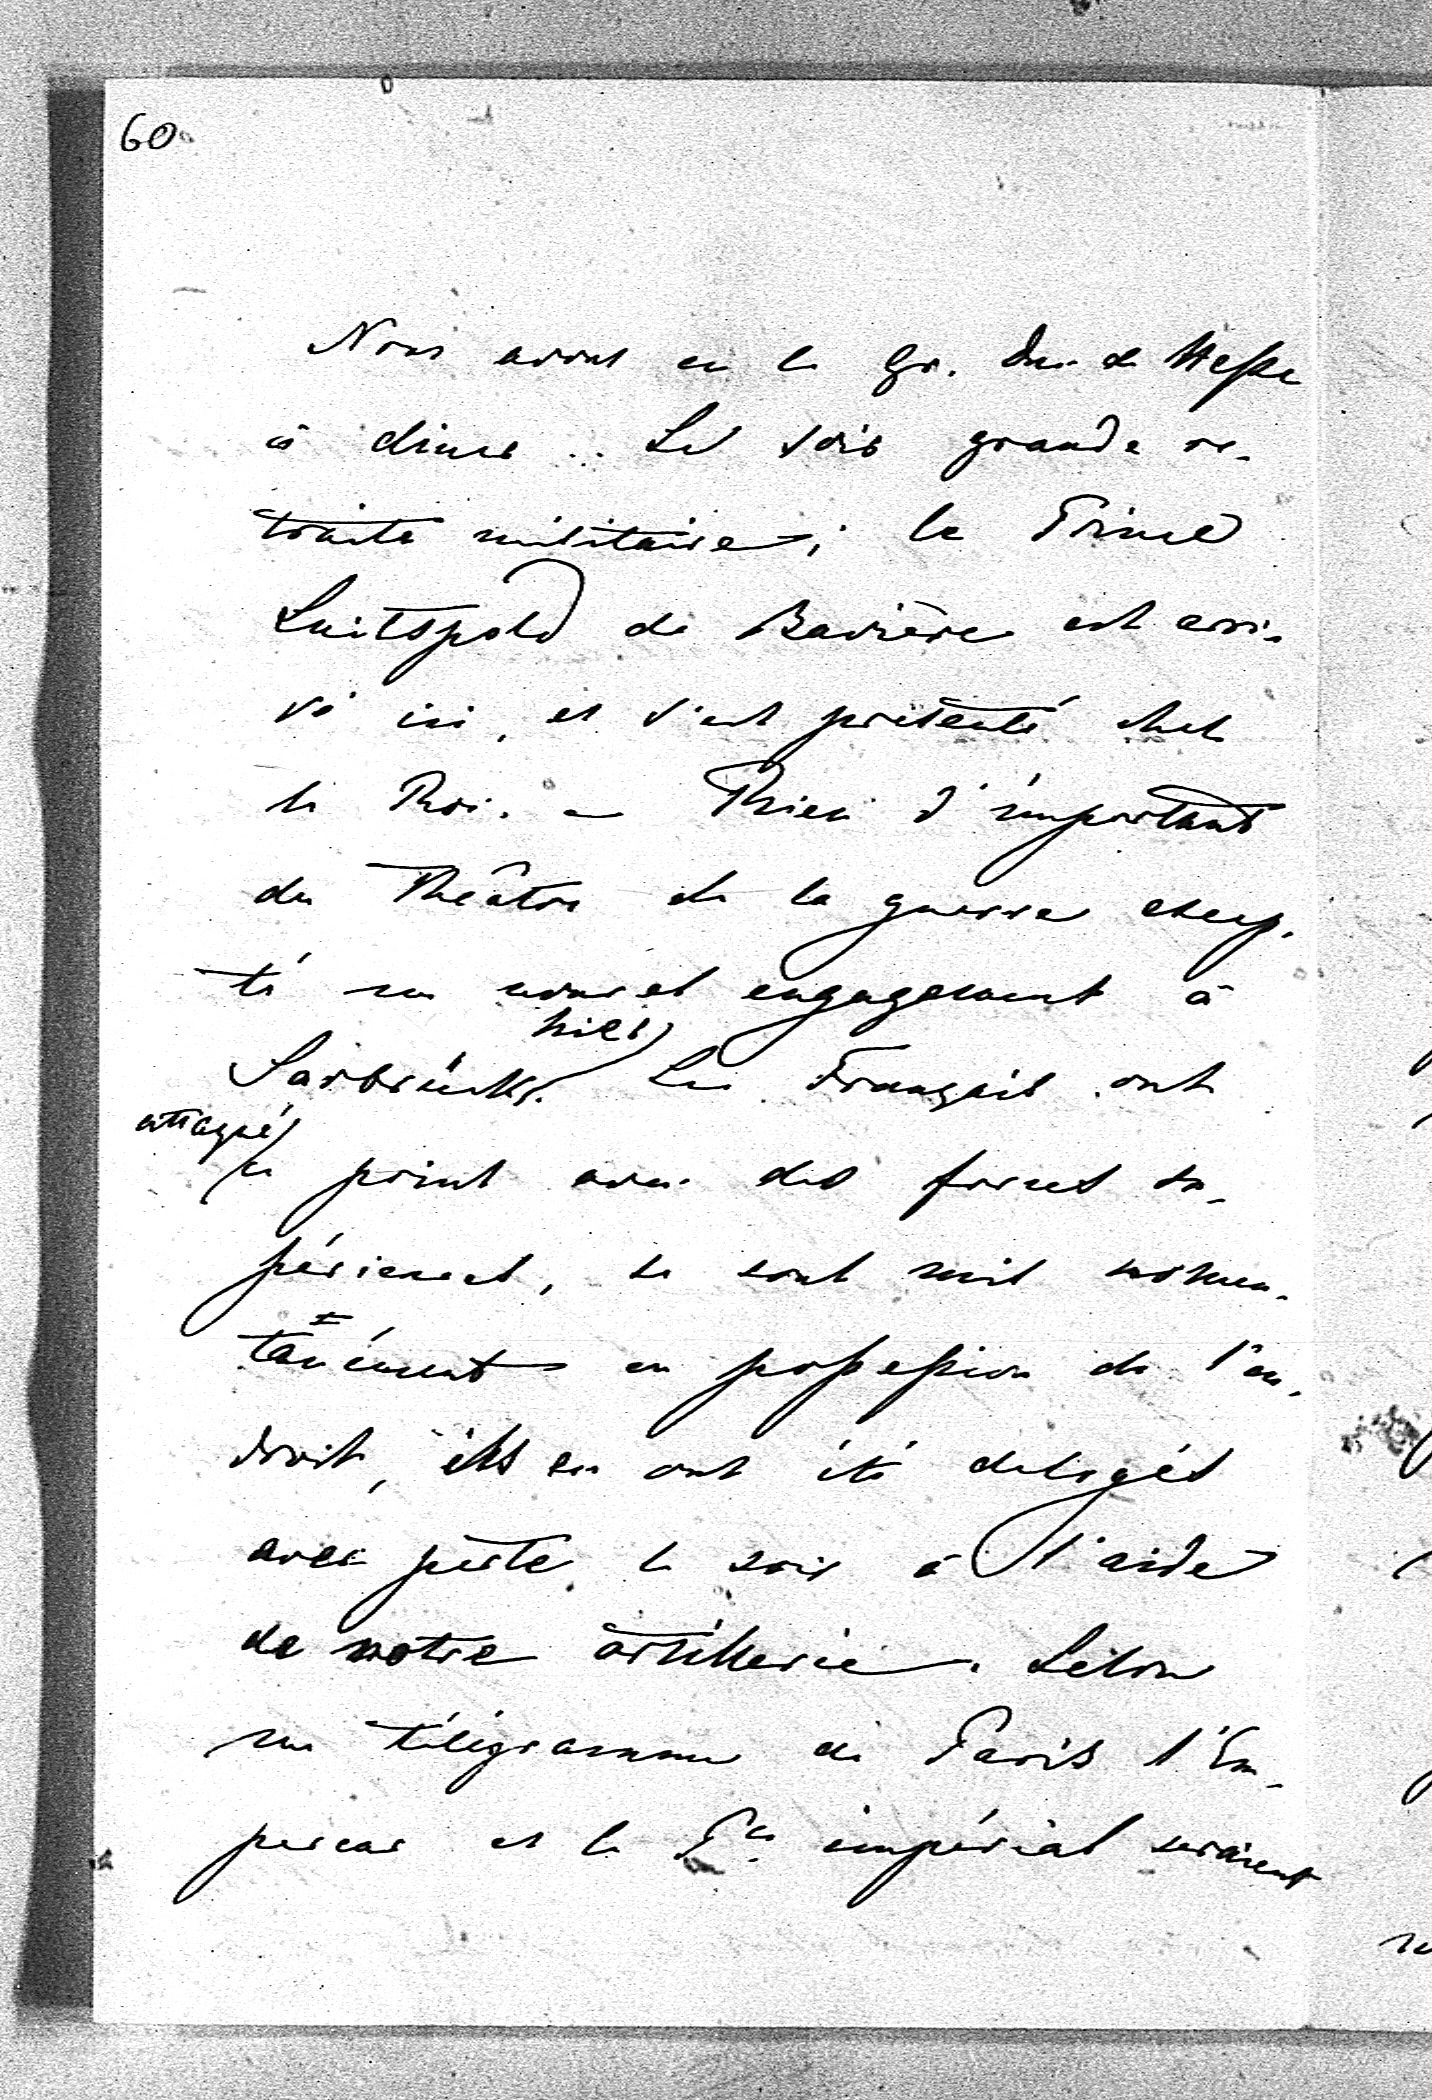 60
Nous avons eu le Gr. Duc de Hesse
à diner.. Le soir grande re-
traite militaire; le Prince
Luitspold de Bavière est arri-
vé ici, et s'est présenté chez
le Roi. – Rien d'important
du Théâtre de la guerre excep-
té un nouvel engagement à
hier
Sarbrücke. Les Français ont
attaqué
ce point avec des forces su-
périeures, se sont mis momen-
tanément en possession de l'en-
droit, ils en ont été delogés
avec perte le soir à l'aide
de notre artillerie. Selon
un télégramme de Paris l'Em-
pereur et le Pce impérial seraient